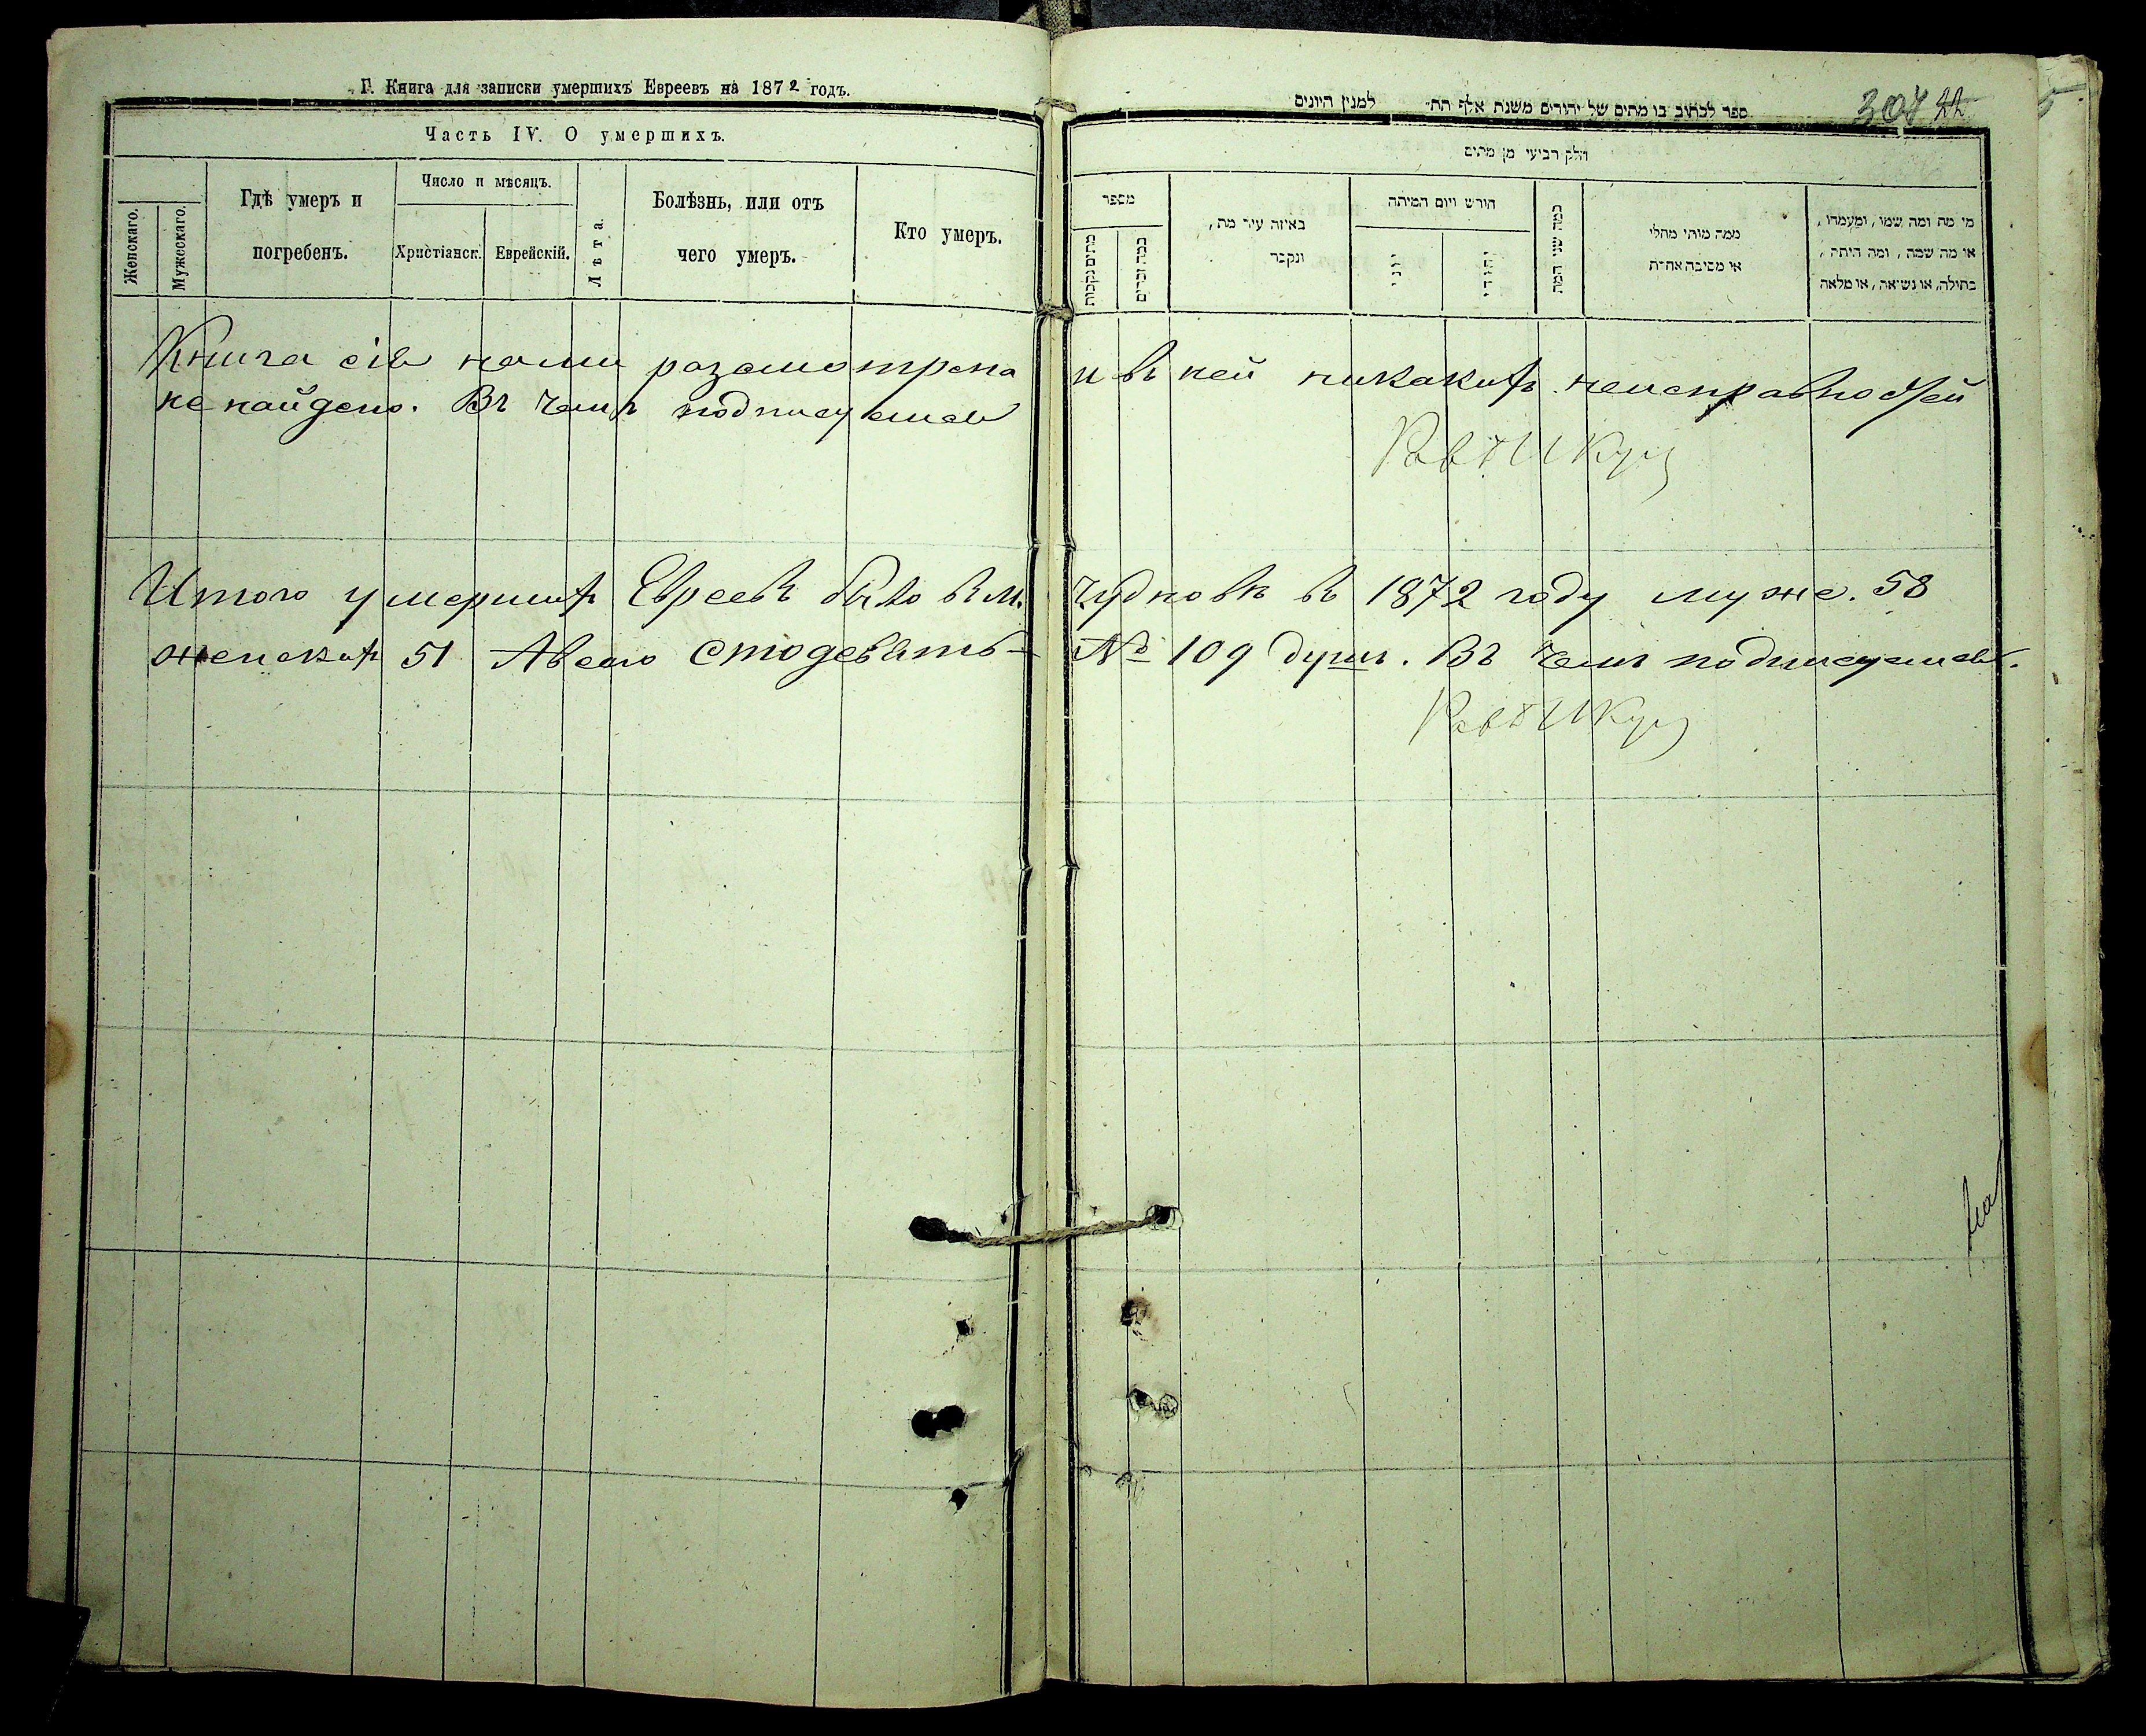 Г. Книга для записки умершихъ Евреевъ на 1872 годъ.
Часть IV. О умершихъ.
Женскаго.
Мужескаго.
Гдѣ умеръ и
погребенъ.
Число и мѣсяцъ.
Христіанск.
Еврейскій.
Лѣта.
Болѣзнь, или отъ
чего умеръ.
Кто умеръ.
ספר לכתוב בו מתים של יהודים משנת אלף תת למנין היונים
304 22
חלק רביעי מן מתים
מספר
כמה זכרים
באיזה עיר מת,
ונקבר
חודש ויום המיתה
יוני
יהודי
כמה שני המת
ממה מותי מחלי
או מסיבה אחרת
מי מת ומה שמו, ומעמדו,
או מה שמה, ומה היתה,
בתולה, או נשואה, או מלאה
Книга сія нами разсмотрена и въ ней никакихъ неисправностей
не найдено. Въ чемъ подписуемся
Итого умершихъ Евреевъ было въ м. Чудновѣ въ 1872 году муже. 58
женскихъ 51 А всего сто девять – № 109 душъ. Въ чемъ подписуемся.